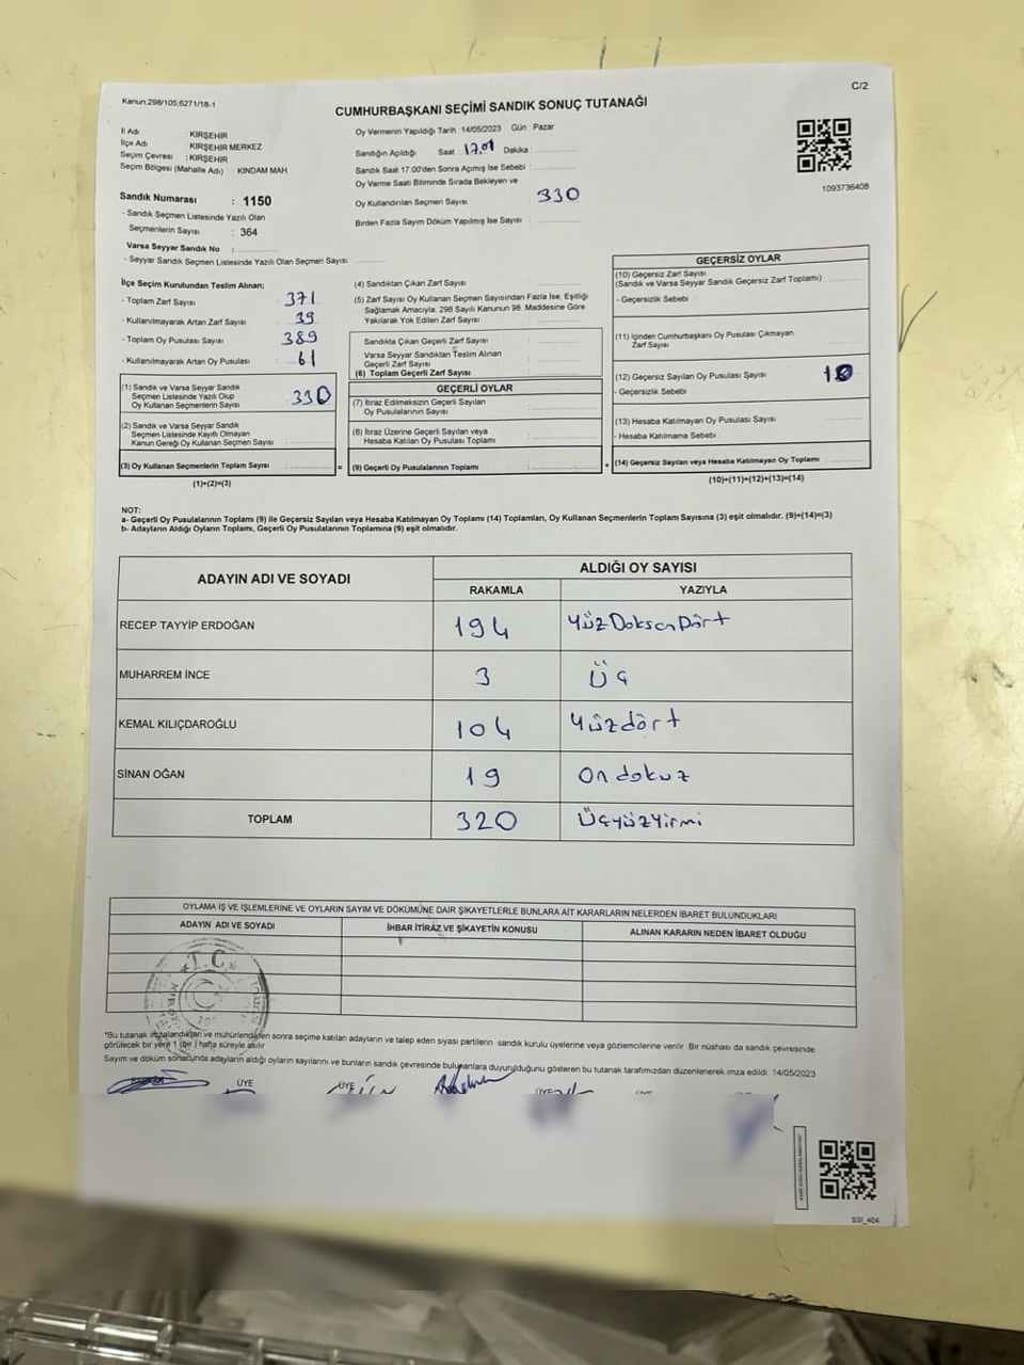 Kanun:298/105;6271/18-1
C/2
CUMHURBAŞKANI SEÇİMİ SANDIK SONUÇ TUTANAĞI
İl Adı KIRŞEHİR
İlçe Adı KIRŞEHİR MERKEZ
Seçim Çevresi : KIRŞEHİR
Seçim Bölgesi (Mahalle Adı) KINDAM MAH
Sandık Numarası : 1150
- Sandık Seçmen Listesinde Yazılı Olan
Seçmenlerin Sayısı : 364
Varsa Seyyar Sandık No :
- Seyyar Sandık Seçmen Listesinde Yazılı Olan Seçmen Sayısı
Oy Vermenin Yapıldığı Tarih : 14/05/2023 Gün : Pazar
Sandığın Açıldığı Saat 17.01 Dakika :
Sandık Saat 17:00'den Sonra Açımış İse Sebebi :
Oy Verme Saati Bitiminde Sırada Bekleyen ve
Oy Kullandırılan Seçmen Sayısı 330
Birden Fazla Sayım Döküm Yapılmış İse Sayısı
1093736408
İlçe Seçim Kurulundan Teslim Alınan;
- Toplam Zarf Sayısı 371
- Kullanılmayarak Artan Zarf Sayısı 39
- Toplam Oy Pusulası Sayısı 389
- Kullanılmayarak Artan Oy Pusulası 61
(1) Sandık ve Varsa Seyyar Sandık
Seçmen Listesinde Yazılı Olup
Oy Kullanan Seçmenlerin Sayısı 330
(2) Sandık ve Varsa Seyyar Sandık
Seçmen Listesinde Kayıtlı Olmayan
Kanun Gereği Oy Kullanan Seçmen Sayısı
(3) Oy Kullanan Seçmenlerin Toplam Sayısı
(1)+(2)=(3)
(4) Sandıktan Çıkan Zarf Sayısı
(5) Zarf Sayısı Oy Kullanan Seçmen Sayısından Fazla İse, Eşitliği
Sağlamak Amacıyla, 298 Sayılı Kanunun 98. Maddesine Göre
Yakılarak Yok Edilen Zarf Sayısı
Sandıkta Çıkan Geçerli Zarf Sayısı
Varsa Seyyar Sandıktan Teslim Alınan
Geçerli Zarf Sayısı
(6) Toplam Geçerli Zarf Sayısı
GEÇERLİ OYLAR
(7) İtiraz Edilmeksizin Geçerli Sayılan
Oy Pusulalarının Sayısı
(8) İtiraz Üzerine Geçerli Sayılan veya
Hesaba Katılan Oy Pusulası Toplamı
= (9) Geçerli Oy Pusulalarının Toplamı
GEÇERSİZ OYLAR
(10) Geçersiz Zarf Sayısı
(Sandık ve Varsa Seyyar Sandık Geçersiz Zarf Toplamı)
- Geçersizlik Sebebi
(11) İçinden Cumhurbaşkanı Oy Pusulası Çıkmayan
Zarf Sayısı
(12) Geçersiz Sayılan Oy Pusulası Sayısı 10
- Geçersizlik Sebebi
(13) Hesaba Katılmayan Oy Pusulası Sayısı
- Hesaba Katılmama Sebebi
+ (14) Geçersiz Sayılan veya Hesaba Katılmayan Oy Toplamı
(10)+(11)+(12)+(13)=(14)
NOT:
a- Geçerli Oy Pusulalarının Toplamı (9) ile Geçersiz Sayılan veya Hesaba Katılmayan Oy Toplamı (14) Toplamları, Oy Kullanan Seçmenlerin Toplam Sayısına (3) eşit olmalıdır. (9)+(14)=(3)
b- Adayların Aldığı Oyların Toplamı, Geçerli Oy Pusulalarının Toplamına (9) eşit olmalıdır.
ADAYIN ADI VE SOYADI
ALDIĞI OY SAYISI
RAKAMLA YAZIYLA
RECEP TAYYİP ERDOĞAN 194 YüzDoksanDört
MUHARREM İNCE 3 Üç
KEMAL KILIÇDAROĞLU 104 Yüzdört
SİNAN OĞAN 19 Ondokuz
TOPLAM 320 Üçyüzyirmi
OYLAMA İŞ VE İŞLEMLERİNE VE OYLARIN SAYIM VE DÖKÜMÜNE DAİR ŞİKAYETLERLE BUNLARA AİT KARARLARIN NELERDEN İBARET BULUNDUKLARI
ADAYIN ADI VE SOYADI İHBAR İTİRAZ VE ŞİKAYETİN KONUSU ALINAN KARARIN NEDEN İBARET OLDUĞU
T.C.
*Bu tutanak imzalandıktan ve mühürlendikten sonra seçime katılan adayların ve talep eden siyasi partilerin sandık kurulu üyelerine veya gözlemcilerine verilir. Bir nüshası da sandık çevresinde
görülecek bir yere 1 (bir) hafta süreyle asılır
Sayım ve döküm sonucunda adayların aldığı oyların sayılarını ve bunların sandık çevresinde bulunanlara duyurulduğunu gösteren bu tutanak tarafımızdan düzenlenerek imza edildi. 14/05/2023
ÜYE ÜYE ÜYE